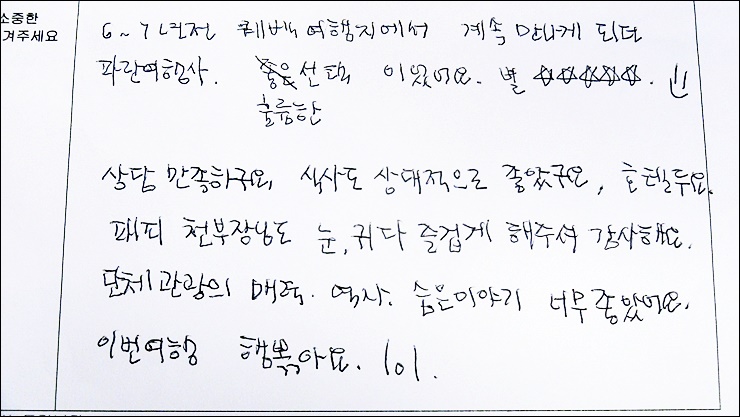 소중한
겨주세요
6~7년전 퀘벡여행지에서 계속 만나게 되던
파란여행사. 좋은 선택 이었어요. 별 ☆☆☆☆☆. !!
훌륭한
상담 만족하구요, 식사도 상대적으로 좋았구요, 호텔두요.
패피 천부장님도 눈, 귀 다 즐겁게 해주셔 감사해요.
단체관광의 매력. 역사. 숨은이야기 너무 좋았어요.
이번여행 행복아요. lol.